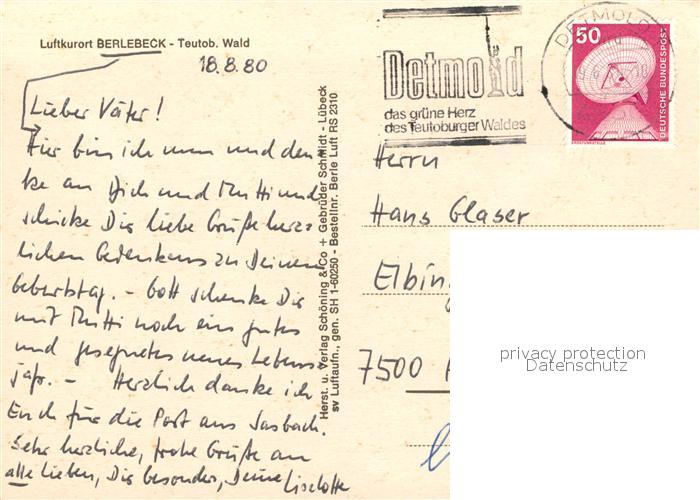 Luftkurort BERLEBECK - Teutob. Wald
18.8.80
Lieber Vater!
Hier bin ich nun und den-
ke an Dich und Mutti und
schicke Dir liebe Grüße herz-
lichen Gedenkens zu Deinem
Geburtstag. - Gott schenke Dir
mit Mutti noch ein gutes
und gesegnetes neues Lebens-
jahr. - Herzlich danke ich
Euch für die Post aus Sasbach.
Sehr herzliche, frohe Grüße an
alle Lieben, Dir besonders, Deine Liselotte
Herst. u. Verlag Schöning & Co + Gebrüder Schmidt - Lübeck
sv Luftaufn., gen. SH 1-60250 - Bestellnr. Berle Luft RS 2310
Detmold
das grüne Herz
des Teutoburger Waldes
DETMOLD
50
DEUTSCHE BUNDESPOST
ERDEFUNKSTELLE
Herrn
Hans Glaser
Elbin
7500
privacy protection
Datenschutz